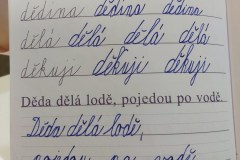 dědina dědina dědina
dělá dělá dělá dělá
děkuji děkuji děkuji
Děda dělá lodě, pojedou po vodě.
Děda dělá lodě,
pojedou po vodě.